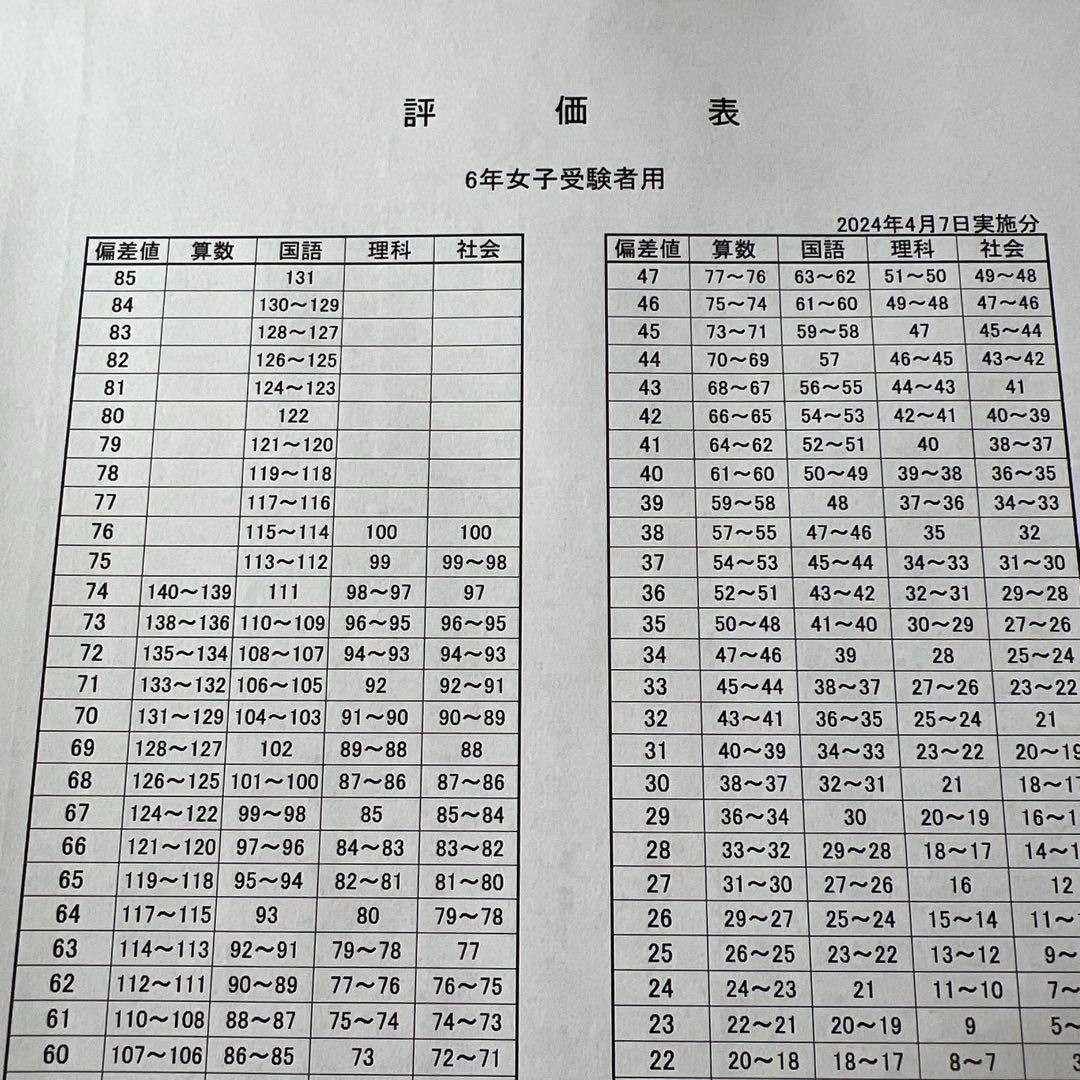 評 価 表
6年女子受験者用
2024年4月7日実施分
偏差値 算数 国語 理科 社会
85 131
84 130～129
83 128～127
82 126～125
81 124～123
80 122
79 121～120
78 119～118
77 117～116
76 115～114 100 100
75 113～112 99 99～98
74 140～139 111 98～97 97
73 138～136 110～109 96～95 96～95
72 135～134 108～107 94～93 94～93
71 133～132 106～105 92 92～91
70 131～129 104～103 91～90 90～89
69 128～127 102 89～88 88
68 126～125 101～100 87～86 87～86
67 124～122 99～98 85 85～84
66 121～120 97～96 84～83 83～82
65 119～118 95～94 82～81 81～80
64 117～115 93 80 79～78
63 114～113 92～91 79～78 77
62 112～111 90～89 77～76 76～75
61 110～108 88～87 75～74 74～73
60 107～106 86～85 73 72～71
偏差値 算数 国語 理科 社会
47 77～76 63～62 51～50 49～48
46 75～74 61～60 49～48 47～46
45 73～71 59～58 47 45～44
44 70～69 57 46～45 43～42
43 68～67 56～55 44～43 41
42 66～65 54～53 42～41 40～39
41 64～62 52～51 40 38～37
40 61～60 50～49 39～38 36～35
39 59～58 48 37～36 34～33
38 57～55 47～46 35 32
37 54～53 45～44 34～33 31～30
36 52～51 43～42 32～31 29～28
35 50～48 41～40 30～29 27～26
34 47～46 39 28 25～24
33 45～44 38～37 27～26 23～22
32 43～41 36～35 25～24 21
31 40～39 34～33 23～22 20～19
30 38～37 32～31 21 18～17
29 36～34 30 20～19 16～
28 33～32 29～28 18～17 14～
27 31～30 27～26 16 12
26 29～27 25～24 15～14 11～
25 26～25 23～22 13～12 9～
24 24～23 21 11～10 7～
23 22～21 20～19 9 5～
22 20～18 18～17 8～7